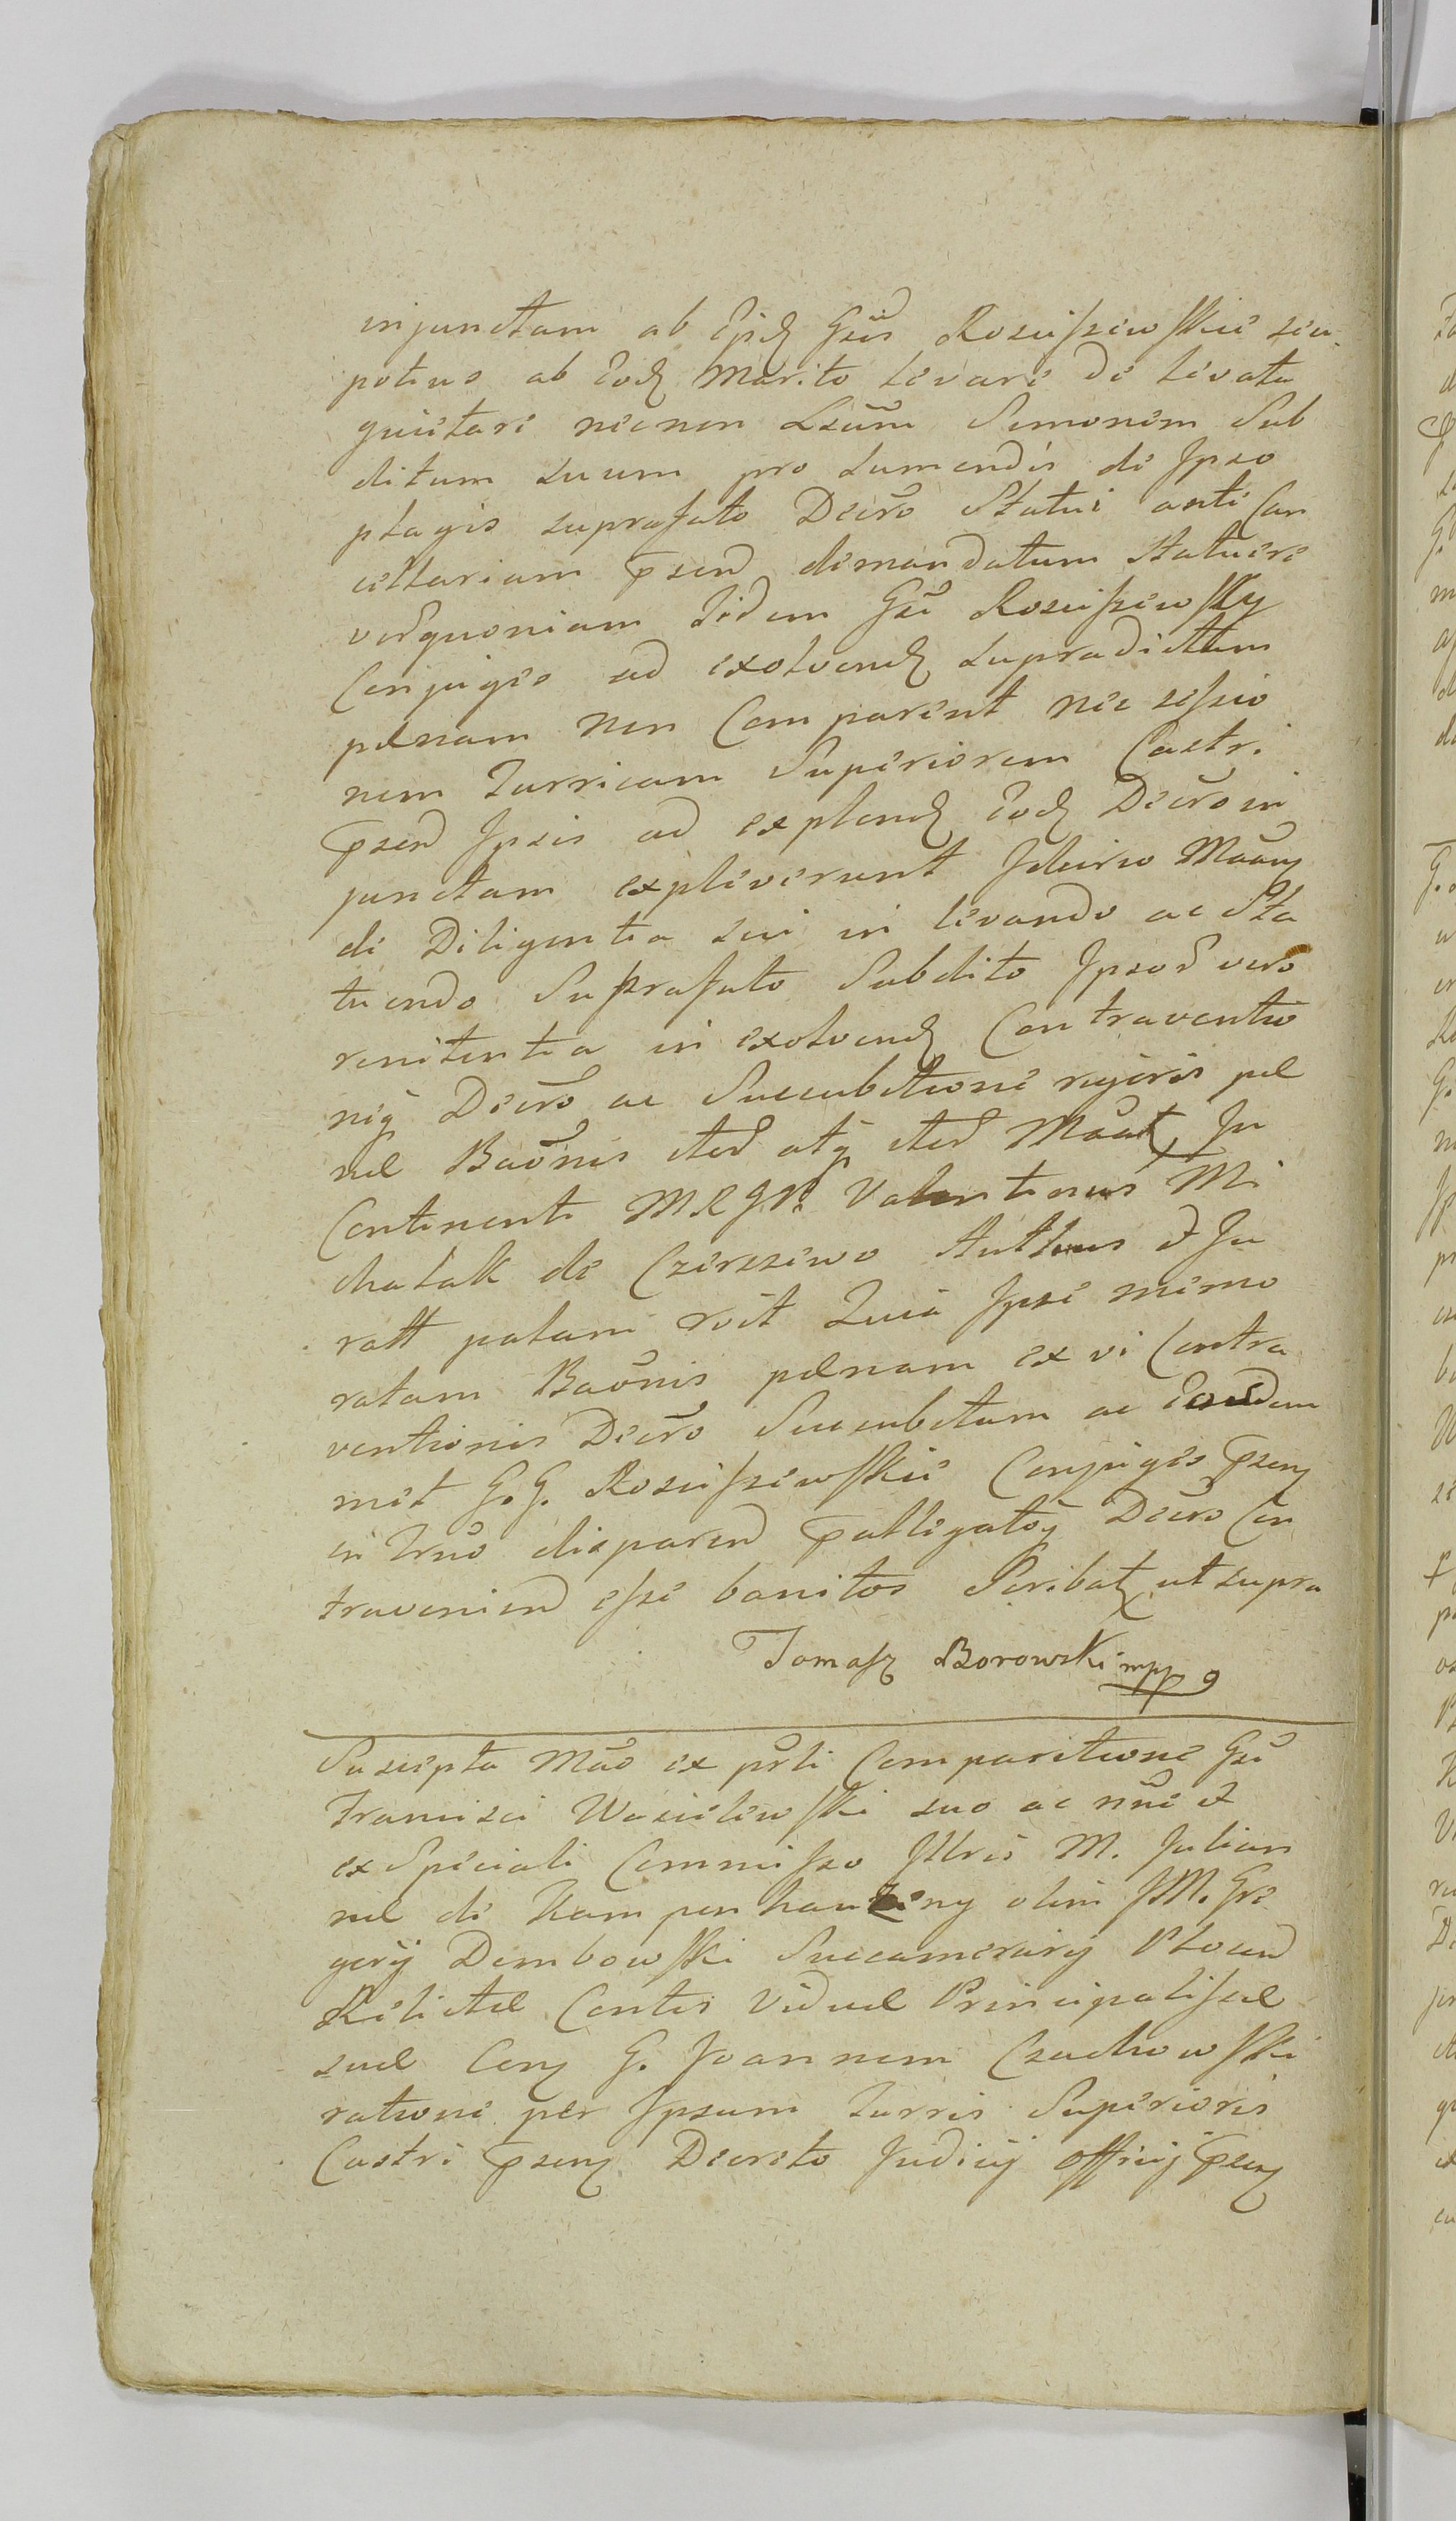 injunctam ab Ejsd Gsis Rosciszewskie seu
potius ab Eod Marito levare de levata
quietare necnon Lsum Simonem Sub
ditum suum pro sumendis de Ipso
plagis suprafato Decro Statui ante Can
cellariam psend demandatum statuere
verquoniam Iidem Gsi Rosciszewsky
Conjuges ad exolvend supradictam
pænam non Comparent nec sessio
nem Turricam Superiorem Castri
psend Ipsis ad explend Eod Decro in
junctam expleverunt Ideirco
de Diligentia sui in levando ac sta
tuendo Suprafato Subdito Ipsor vero
renitentia in exolvend Contraventio
neq Decro ac Succubitione rigoris pæ
næ Baonis sted atq sted In
Continenti Valentinus Mi
chalak de Czerszewo et Ju
ratt palam roit Quia Ipse memo
ratam Baonis pænam ex vi Contra
ventionis Decro Succubitam ac Eosdem
met G. G. Rosciszewskie Conjuges psen
in Trno disparend palligatoq Decro Con
traveniend esse banitos Scribat ut supra
Tomasz Borowski mpp
Suscepta Mao ex prti Comparitione Gsi
Francisci Wasielewski suo ac nne et
ex Speciali Commisso Illris M. Julian
næ de olim IM. Gre
gerij Dembowski Succamerarij Plocen
Relictæ Contis Viduæ Principalisæ
suæ Con G. Joannem Czachowski
ratione per Ipsum Turris Superioris
Castri psen Decreto Judicij officij psen